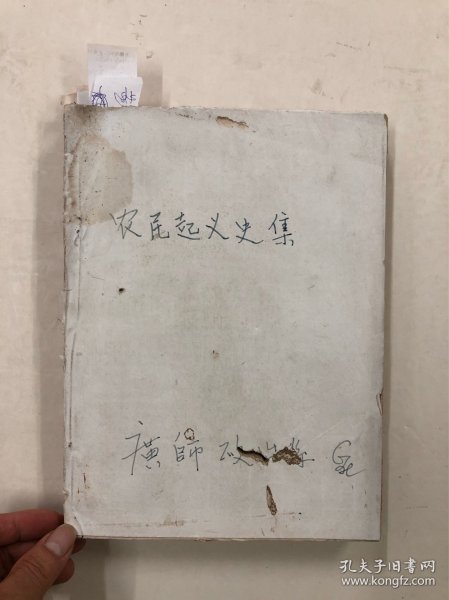 农民起义史集
廣師
孔夫子旧书网
www.kongfz.com